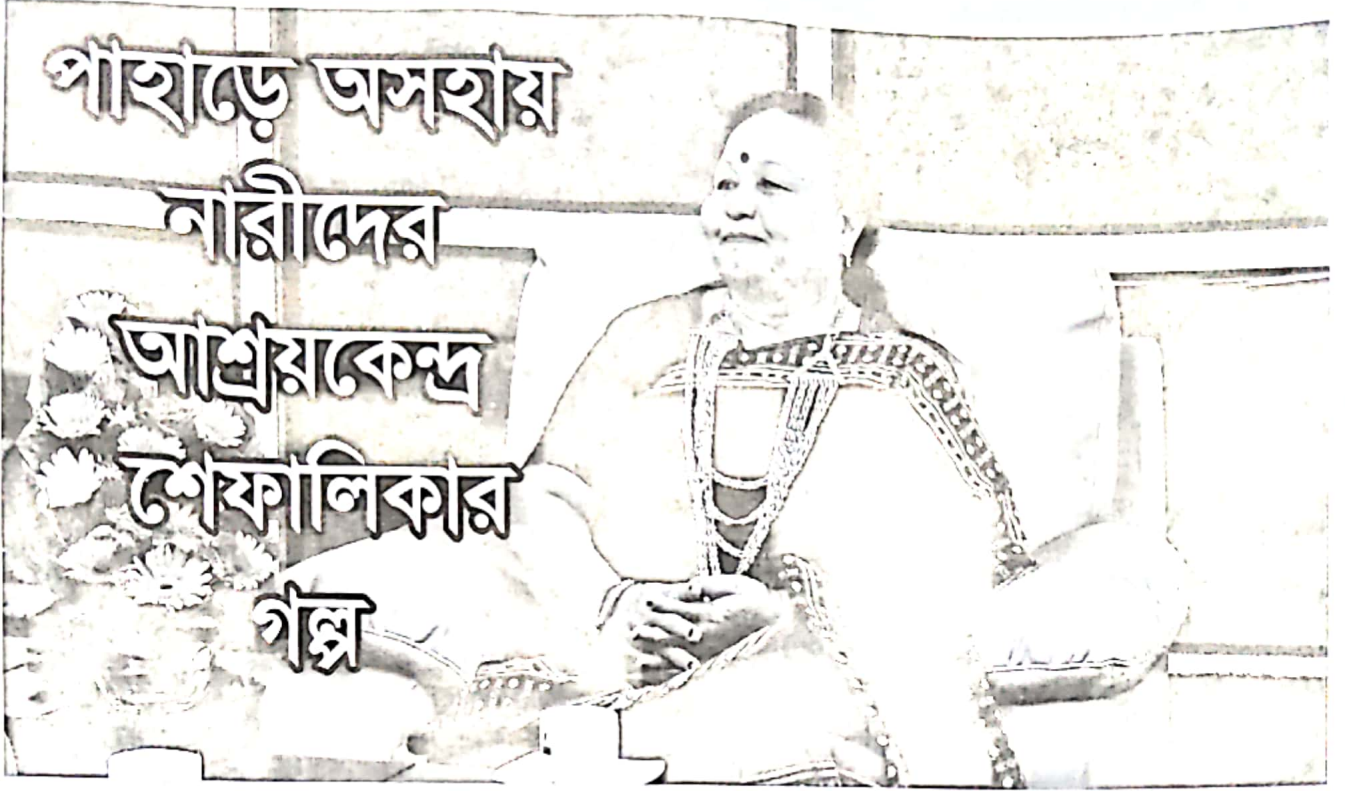 পাহাড়ে অসহায়
নারীদের
আশ্রয়কেন্দ্র
শৈফালিকার
গল্প